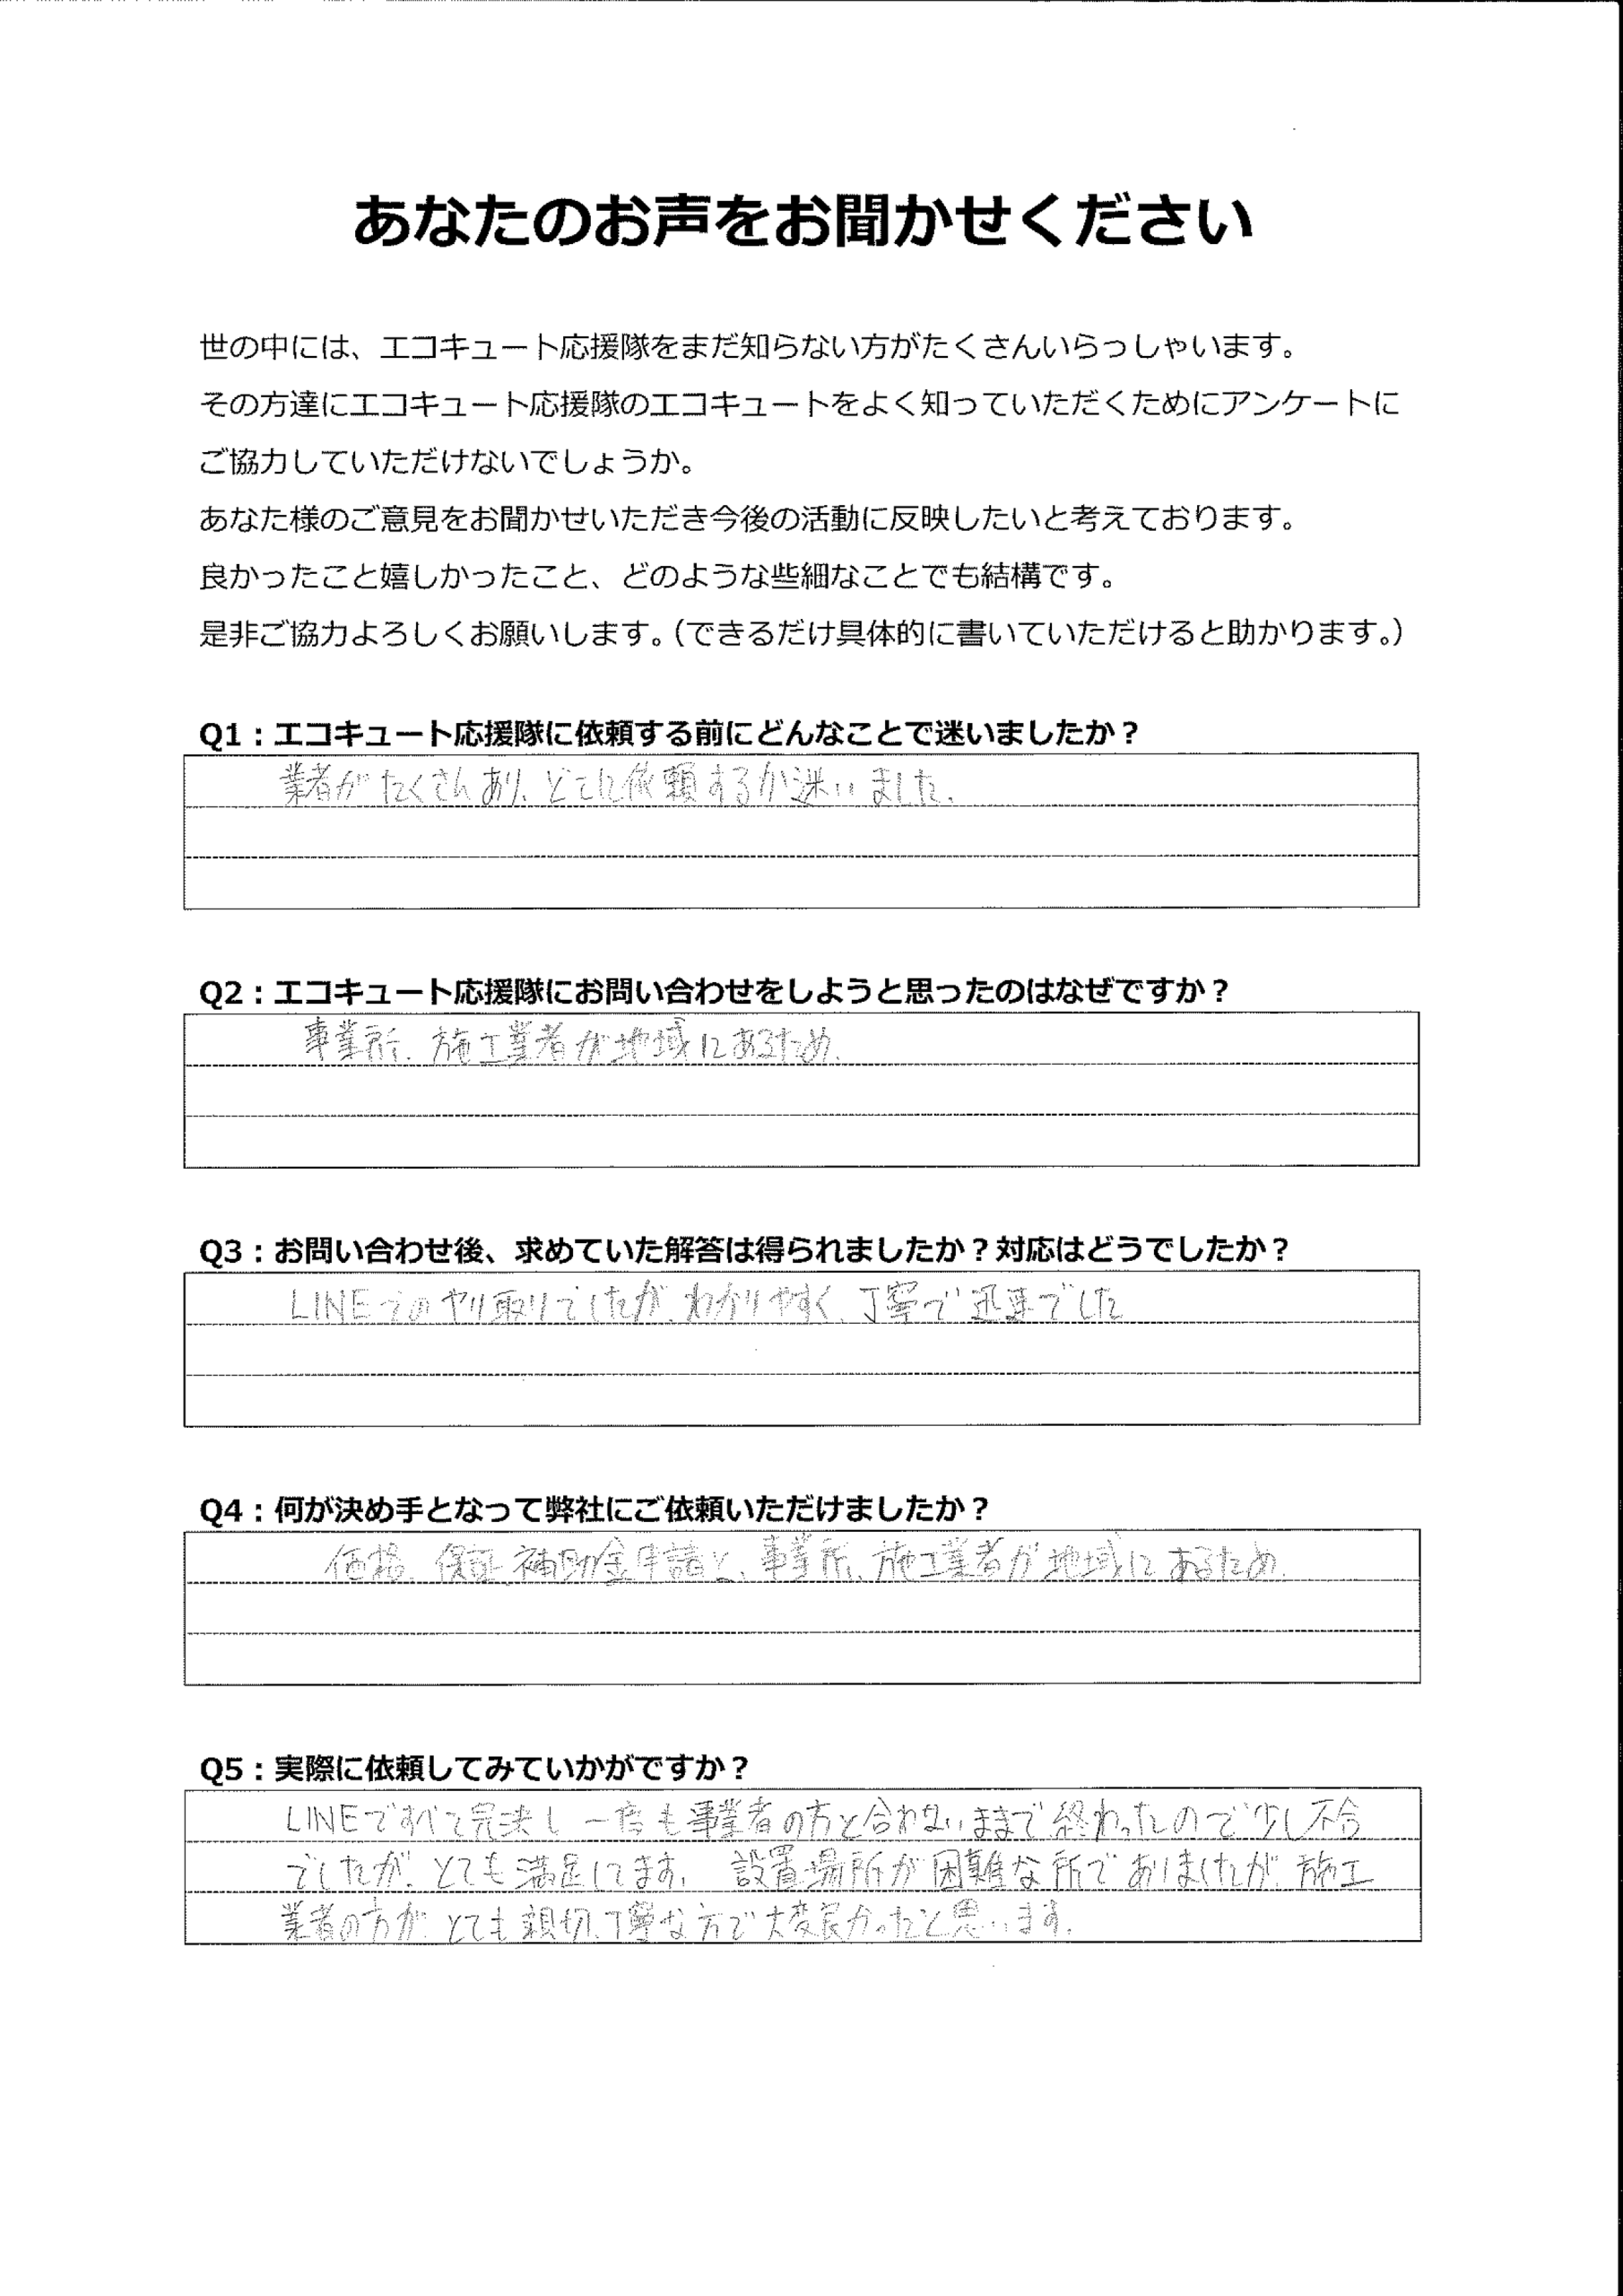 あなたのお声をお聞かせください
世の中には、エコキュート応援隊をまだ知らない方がたくさんいらっしゃいます。
その方達にエコキュート応援隊のエコキュートをよく知っていただくためにアンケートに
ご協力していただけないでしょうか。
あなた様のご意見をお聞かせいただき今後の活動に反映したいと考えております。
良かったこと嬉しかったこと、どのような些細なことでも結構です。
是非ご協力よろしくお願いします。(できるだけ具体的に書いていただけると助かります。)
Q1：エコキュート応援隊に依頼する前にどんなことで迷いましたか？
業者がたくさんあり、どこに依頼するか迷いました。
Q2：エコキュート応援隊にお問い合わせをしようと思ったのはなぜですか？
事業所、施工業者が地域にあるため、
Q3：お問い合わせ後、求めていた解答は得られましたか？対応はどうでしたか？
LINEでのやり取りでしたが、わかりやすく、丁寧で迅速でした
Q4：何が決め手となって弊社にご依頼いただけましたか？
価格、保証、補助金申請と、事業所、施工業者が地域にあるため、
Q5：実際に依頼してみていかがですか？
LINEですべて完決し一度も事業者の方と合わないままで終わったので少し不合
でしたが、とても満足してます。 設置場所が困難な所でありましたが、施工
業者の方が、とても親切、丁寧な方で大変良かったと思います。